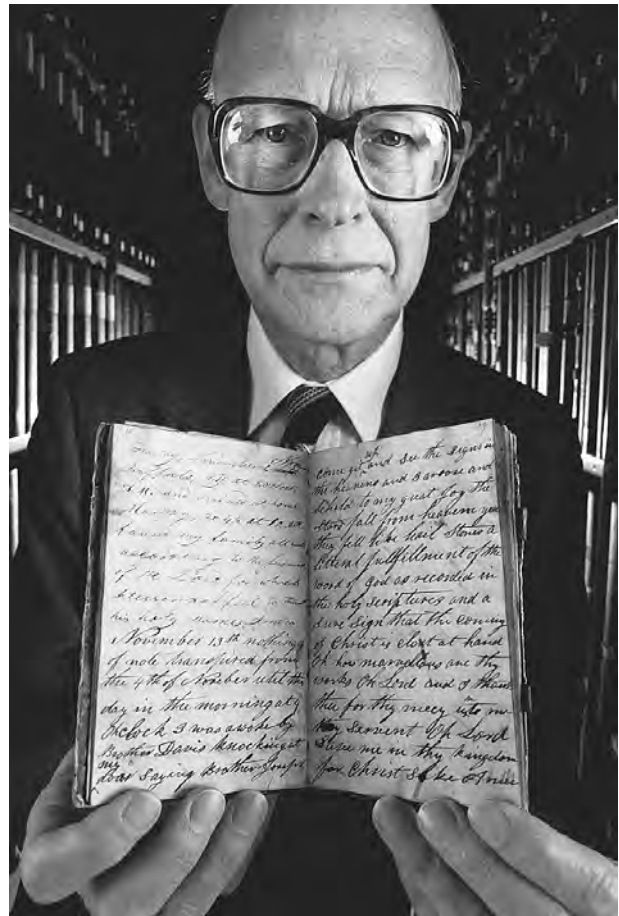 and arived at home
Monday
found my family all well
according to the promise
of the Lord for which
blessing I feel to thank
his holy name Amen
November 13th nothing
of note transpired from
the 4th of November until this
day in the morning at 4
Oh clock I was awoke by
Brother Davis knocking at
my
door saying Brother Joseph
come git up and see the signs in
the heavens and I arose and
beheld to my great Joy the
stars fall from heaven yea
they fell like hail stones a
litteral fullfillment of the
word of God as recorded in
the holy scriptures and a
sure sign that the coming
of Christ is clost at hand
Oh how marvellous are thy
works Oh Lord and I thank
thee for thy mercy unto me
thy servent Oh Lord
save me in thy kingdom
for Christ sake Amen